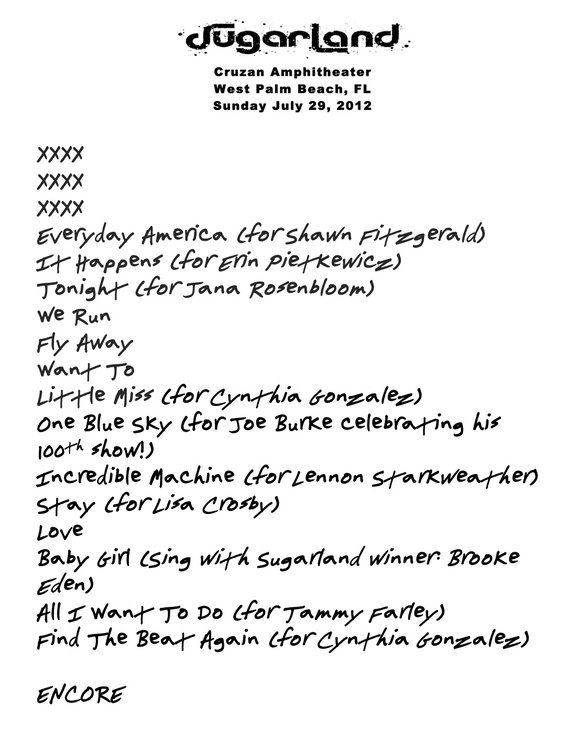 sugarland
Cruzan Amphitheater
West Palm Beach, FL
Sunday July 29, 2012
XXXX
XXXX
XXXX
Everyday America (for Shawn Fitzgerald)
It Happens (for Erin Pietkewicz)
Tonight (for Jana Rosenbloom)
We Run
Fly Away
Want To
Little Miss (for Cynthia Gonzalez)
One Blue Sky (for Joe Burke celebrating his
100th show!)
Incredible Machine (for Lennon Starkweather)
Stay (for Lisa Crosby)
Love
Baby Girl (Sing With Sugarland winner: Brooke
Eden)
All I Want To Do (for Tammy Farley)
Find The Beat Again (for Cynthia Gonzalez)
ENCORE